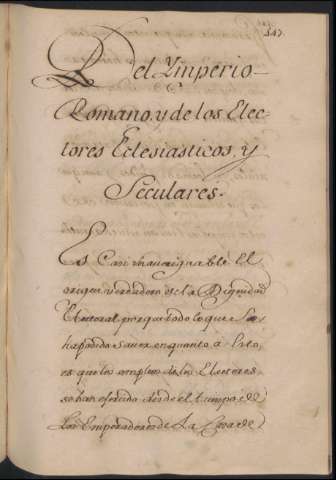 347
Del Ymperio
Romano, y de los Elec-
tores Eclesiasticos, y
Seculares.
Es Casi inaveriguable El
origen verdadero de la Dignidad
Electoral porque todo lo que Se
ha podido saver en quanto a Esto,
es que los empleos de los Electores
se han ofrecido desde el tiempo de
los Emperadores de La Casa de